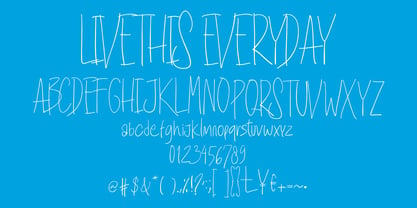 LIVETHIS EVERYDAY
ABCDEFGHIJKLMNOPQRSTUVWXYZ
abcdefghijklmnopqrstuvwxyz
0123456789
@#$&*().;%!?:;[]{}£¥€+=~.